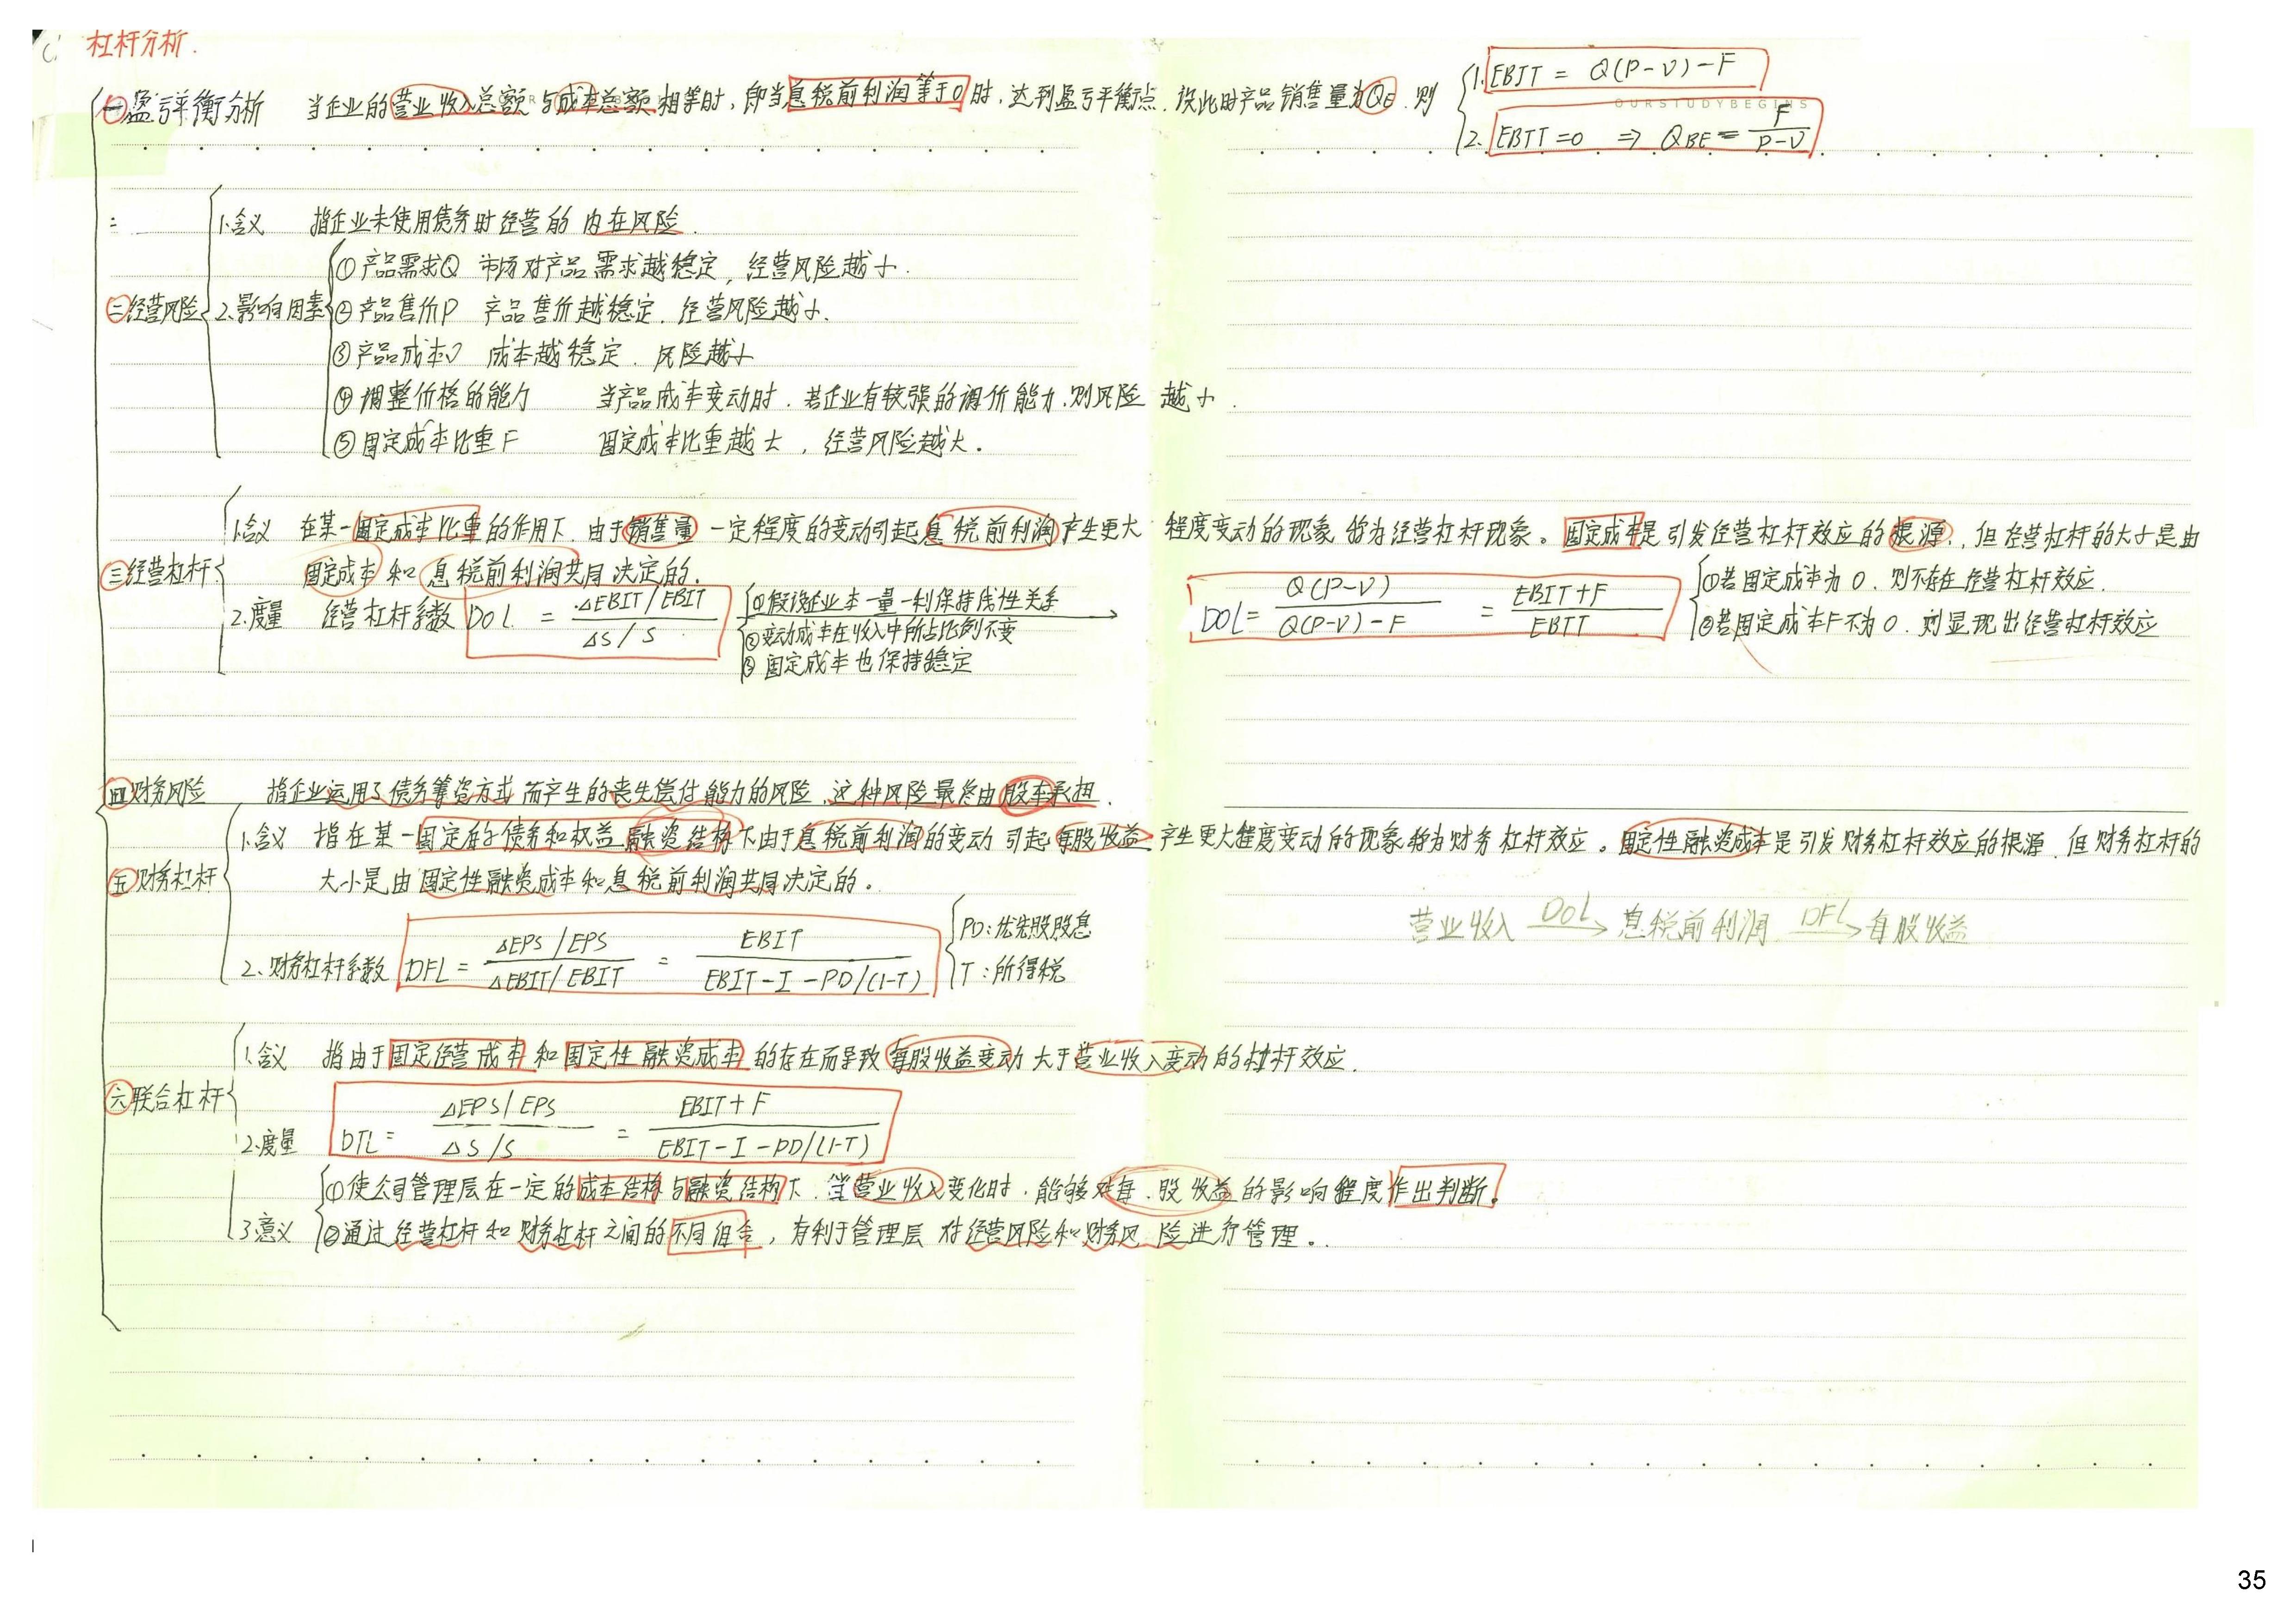 杠杆分析.
㊀盈亏平衡分析 当企业的营业收入总额与成本总额相等时,即当息税前利润等于0时,达到盈亏平衡点.设此时产品销售量为QE.则
1. EBIT = Q(P-V)-F
OURSTUDYBEGINS
2. EBIT=0 ⇒ QBE = F/(P-V)
1.含义 指企业未使用债务时经营的内在风险.
㊁经营风险 2.影响因素
①产品需求Q 市场对产品需求越稳定,经营风险越小.
②产品售价P 产品售价越稳定.经营风险越小.
③产品成本V 成本越稳定.风险越小
④调整价格的能力 当产品成本变动时.若企业有较强的调价能力.则风险越小.
⑤固定成本比重F 固定成本比重越大,经营风险越大.
1.含义 在某一固定成本比重的作用下.由于销售量一定程度的变动引起息税前利润产生更大程度变动的现象称为经营杠杆现象。固定成本是引发经营杠杆效应的根源,但经营杠杆的大小是由
固定成本和息税前利润共同决定的.
㊂经营杠杆
2.度量 经营杠杆系数 DOL = (ΔEBIT/EBIT)/(ΔS/S)
①假设企业本一量一利保持线性关系
②变动成本在收入中所占比例不变
③固定成本也保持稳定
DOL = Q(P-V)/(Q(P-V)-F) = (EBIT+F)/EBIT
①若固定成本为0.则不存在经营杠杆效应.
②若固定成本F不为0.则显现出经营杠杆效应
㊃财务风险 指企业运用了债务筹资方式而产生的丧失偿付能力的风险.这种风险最终由股东承担.
1.含义 指在某一固定的债务和权益融资结构下由于息税前利润的变动引起每股收益产生更大程度变动的现象称为财务杠杆效应。固定性融资成本是引发财务杠杆效应的根源.但财务杠杆的
㊄财务杠杆 大小是由固定性融资成本和息税前利润共同决定的。
营业收入 DOL→ 息税前利润 DFL→ 每股收益
2.财务杠杆系数 DFL = (ΔEPS/EPS)/(ΔEBIT/EBIT) = EBIT/(EBIT-I-PD/(1-T))
PD:优先股股息
T:所得税
1.含义 指由于固定经营成本和固定性融资成本的存在而导致每股收益变动大于营业收入变动的杠杆效应.
㊅联合杠杆
2.度量 DTL = (ΔEPS/EPS)/(ΔS/S) = (EBIT+F)/(EBIT-I-PD/(1-T))
3.意义
①使公司管理层在一定的成本结构与融资结构下.当营业收入变化时.能够对每股收益的影响程度作出判断。
②通过经营杠杆和财务杠杆之间的不同组合,有利于管理层对经营风险和财务风险进行管理。
35